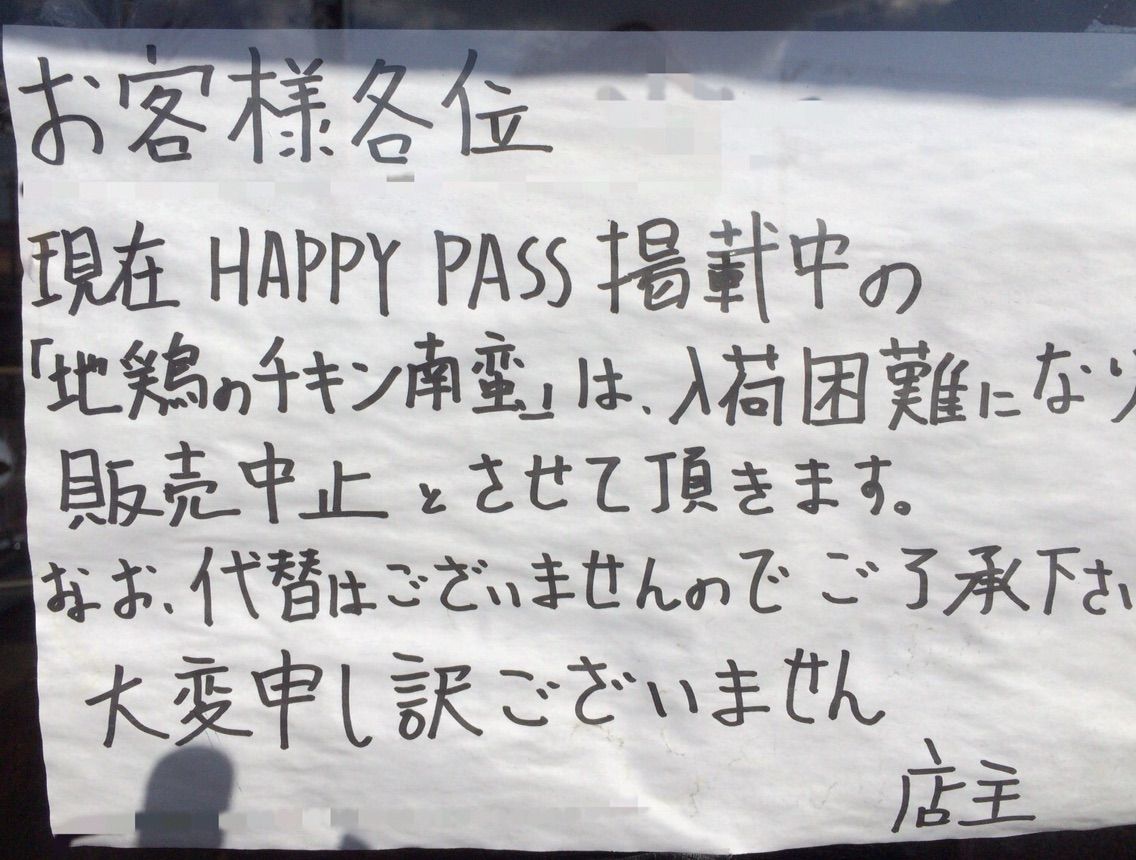 お客様各位
現在 HAPPY PASS 掲載中の
「地鶏のチキン南蛮」は、入荷困難になり
販売中止とさせて頂きます。
なお、代替はございませんのでご了承下さい
大変申し訳ございません
店主